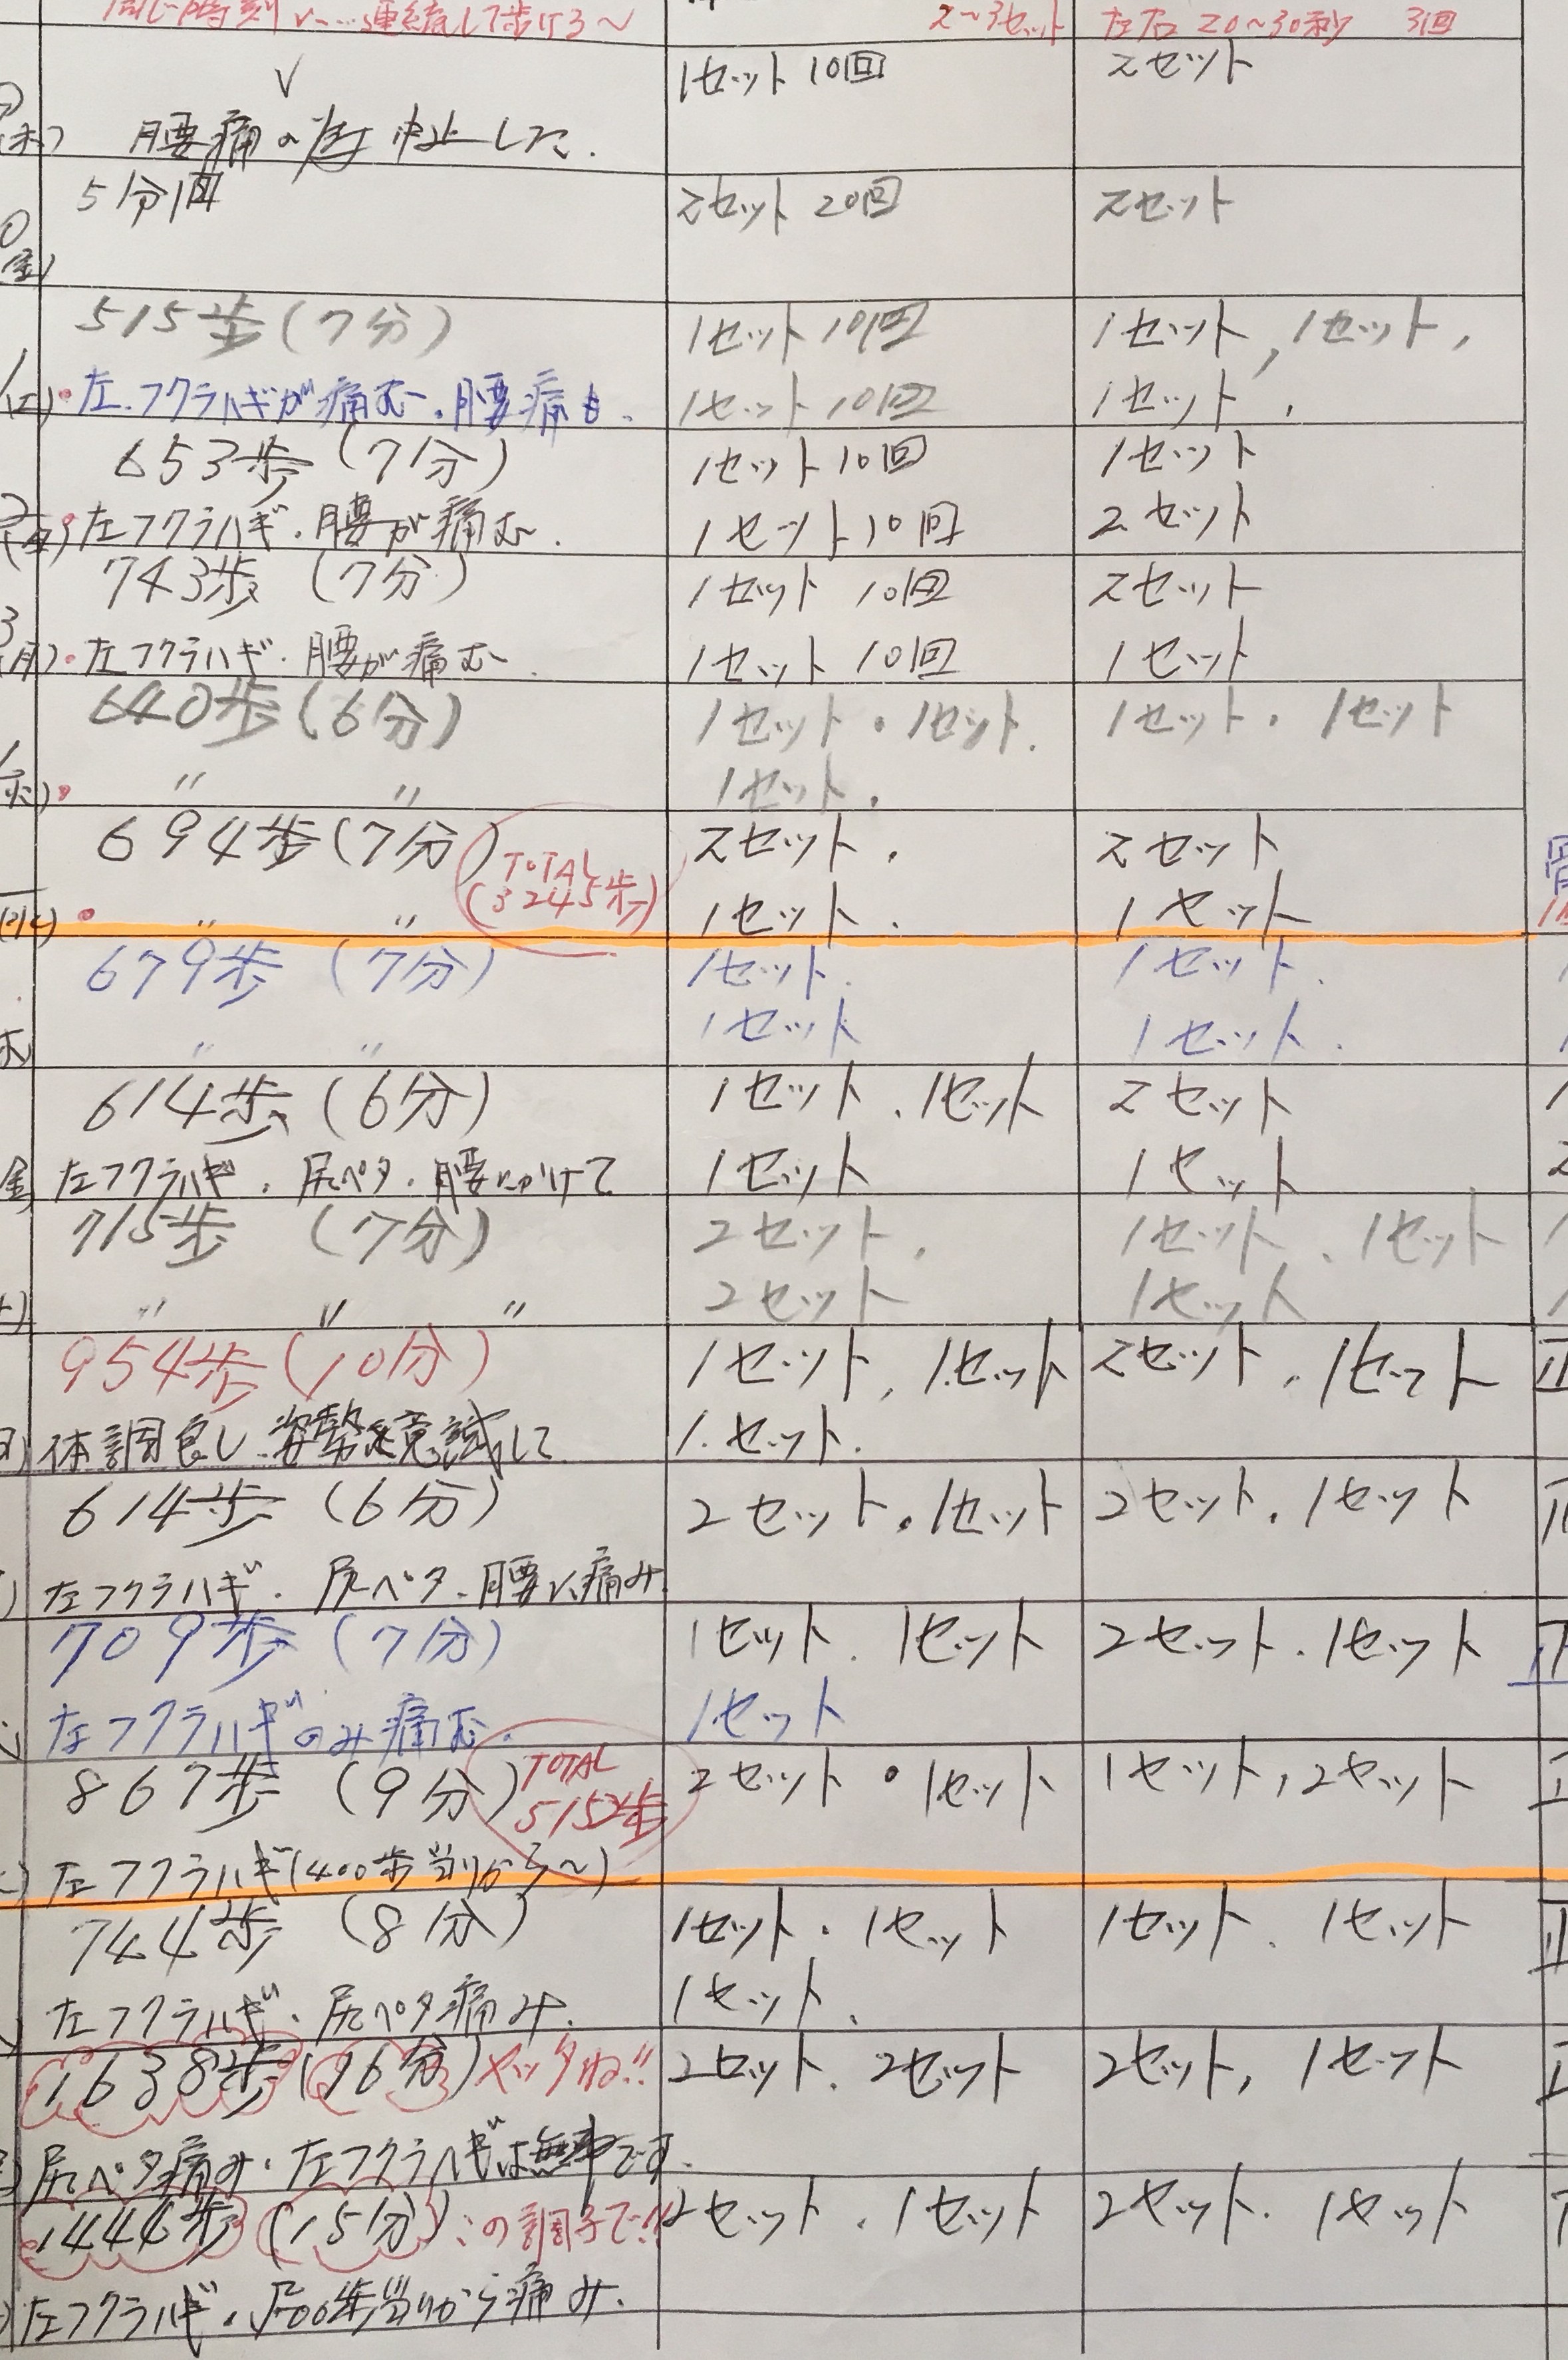 連続して歩ける〜 2〜3セット 左右 20〜30秒 3回
1セット 10回 2セット
腰痛の為中止した.
5分1回 2セット 20回 2セット
515歩(7分) 1セット 10回 1セット, 1セット,
左.フクラハギが痛む.腰痛も. 1セット 10回 1セット.
653歩 (7分) 1セット 10回 1セット
左フクラハギ.腰が痛む. 1セット 10回 2セット
743歩 (7分) 1セット 10回 2セット
(月)・左フクラハギ.腰が痛む. 1セット 10回 1セット
640歩(6分) 1セット・1セット. 1セット・1セット
〃 〃 1セット.
694歩(7分) 2セット. 2セット
TOTAL
(3245歩)
〃 〃 1セット. 1セット
679歩 (7分) 1セット. 1セット.
〃 〃 1セット 1セット.
614歩 (6分) 1セット.1セット 2セット
左フクラハギ.尻ペタ.腰にかけて 1セット 1セット
715歩 (7分) 2セット. 1セット.1セット
〃 〃 〃 2セット 1セット
954歩(10分) 1セット.1セット 2セット.1セット
体調良し.姿勢を意識して 1.セット.
614歩 (6分) 2セット.1セット 2セット.1セット
左フクラハギ.尻ペタ.腰に痛み
709歩 (7分) 1セット.1セット 2セット.1セット
左フクラハギのみ痛む. 1セット
867歩 (9分) 2セット・1セット 1セット,2セット
TOTAL
5152歩
左フクラハギ(400歩当りから〜)
744歩 (8分) 1セット・1セット 1セット.1セット
左フクラハギ.尻ペタ痛み. 1セット.
1638歩(16分)ヤッタね!! 2セット.2セット 2セット,1セット
尻ペタ痛み.左フクラハギは無事です.
1444歩 (15分)この調子で!! 2セット.1セット 2セット.1セット
左フクラハギ.500歩当りから痛み.